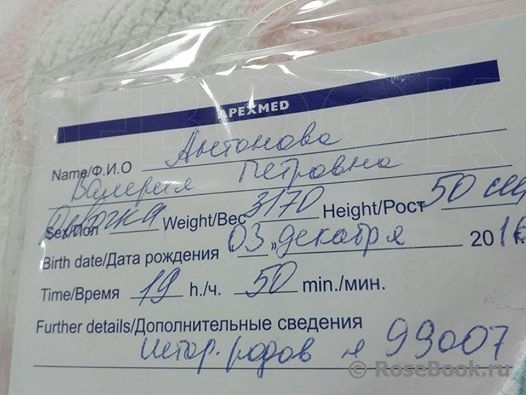 APEXMED
Name/Ф.И.О Антонова
Валерия Петровна
Sex/Пол Девочка Weight/Вес 3170 Height/Рост 50 см
Birth date/Дата рождения 03 „ декабря 201
Time/Время 19 h./ч. 50 min./мин.
Further details/Дополнительные сведения
Истор. родов № 99007
© RoseBook.ru